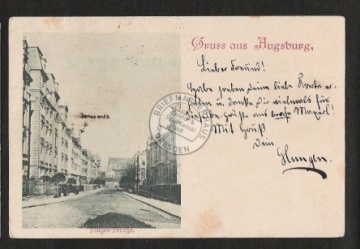 Gruss aus Augsburg,
Lieber Freund!
Habe soeben deine liebe Karte er-
halten u. danke Dir vielmals für
Mit Gruß
Dein
BRIEFMARKENHAUS
DRESDEN